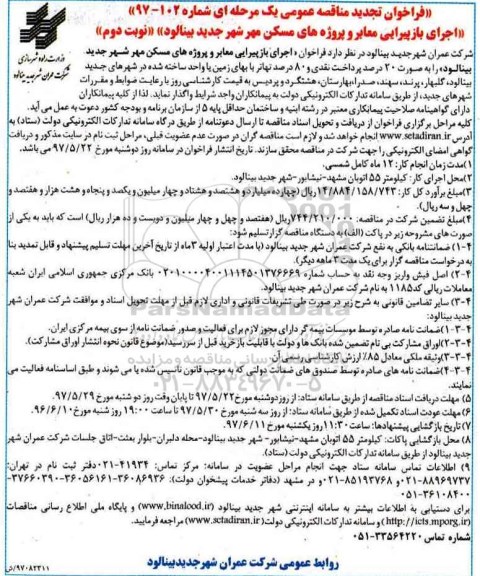 «فراخوان تجدید مناقصه عمومی یک مرحله ای شماره ۱۰۲-۹۷»
«اجرای بازپیرایی معابر و پروژه های مسکن مهر شهر جدید بینالود» «نوبت دوم»
وزارت راه و شهرسازی
شرکت عمران شهر جدید بینالود
شرکت عمران شهرجدید بینالود در نظر دارد فراخوان «اجرای بازپیرایی معابر و پروژه های مسکن مهر شهر جدید
بینالود» را به صورت ۲۰ درصد پرداخت نقدی و ۸۰ درصد تهاتر با بهای زمین یا واحد ساخته شده در شهرهای جدید
بینالود، گلبهار، پرند، سهند، صدرا، بهارستان، هشتگرد و پردیس به قیمت کارشناسی روز با رعایت ضوابط و مقررات
شهرهای جدید، از طریق سامانه تدارکات الکترونیکی دولت به پیمانکاران واجد شرایط واگذار نماید. لذا از کلیه پیمانکاران
دارای گواهینامه صلاحیت پیمانکاری معتبر در رشته ابنیه و ساختمان حداقل پایه ۵ از سازمان برنامه و بودجه کشور دعوت به عمل می آید.
کلیه مراحل برگزاری فراخوان از دریافت و تحویل اسناد مناقصه تا ارسال دعوتنامه از طریق درگاه سامانه تدارکات الکترونیکی دولت (ستاد) به
آدرس www.setadiran.ir انجام خواهد شد و لازم است مناقصه گران در صورت عدم عضویت قبلی، مراحل ثبت نام در سایت مذکور و دریافت
گواهی امضای الکترونیکی را جهت شرکت در مناقصه محقق سازند. تاریخ انتشار فراخوان در سامانه روز دوشنبه مورخ ۹۷/۵/۲۲ می باشد.
۱)مدت زمان انجام کار: ۱۲ ماه کامل شمسی.
۲)محل اجرای کار: کیلومتر ۵۵ اتوبان مشهد-نیشابور-شهر جدید بینالود.
۳)مبلغ برآورد کل کار: ۱۴/۸۸۴/۱۵۸/۷۴۳ریال (چهارده میلیارد و هشتصد و هشتاد و چهار میلیون و یکصد و پنجاه و هشت هزار و هفتصد و
چهل و سه ریال).
۴)مبلغ تضمین شرکت در مناقصه: ۷۴۴/۲۱۰/۰۰۰ریال (هفتصد و چهل و چهار میلیون و دویست و ده هزار ریال) است که باید به یکی از
صورت های مشروحه زیر در پاکت (الف) به دستگاه مناقصه گزار تسلیم شود:
۴-۱) ضمانتنامه بانکی به نفع شرکت عمران شهر جدید بینالود (با مدت اعتبار اولیه ۳ماه از تاریخ آخرین مهلت تسلیم پیشنهاد و قابل تمدید بنا
به درخواست مناقصه گزار برای یک مدت ۳ ماهه دیگر).
۴-۲) اصل فیش واریز وجه نقد به حساب شماره ۰۲۰۱۰۰۰۰۴۰۰۱۱۱۴۵۰۱۳۷۶۶۶۹ بانک مرکزی جمهوری اسلامی ایران شعبه
معاملات ریالی کد۱۱۸۵ به نام شرکت عمران شهر جدید بینالود.
۴-۳) سایر تضامین قانونی به شرح زیر در صورت طی تشریفات قانونی و اداری لازم قبل از مهلت تحویل اسناد و موافقت شرکت عمران شهر
جدید بینالود:
۴-۳-۱)ضمانت نامه صادره توسط موسسات بیمه گر دارای مجوز لازم برای فعالیت و صدور ضمانت نامه از سوی بیمه مرکزی ایران.
۴-۳-۲)اوراق مشارکت بی نام تضمین شده بانک ها و دولت با قابلیت بازخرید قبل از سررسید(موضوع قانون نحوه انتشار اوراق مشارکت).
۴-۳-۳)وثیقه ملکی معادل ۸۵٪ ارزش کارشناسی رسمی آن
۴-۳-۴)ضمانت نامه های صادره توسط صندوق های ضمانت دولتی که به موجب قانون تاسیس شده یا می شوند و طبق اساسنامه فعالیت می
نمایند.
۵) مهلت دریافت اسناد مناقصه از طریق سامانه ستاد: از روز دوشنبه مورخ ۹۷/۵/۲۲ تا پایان وقت روز دو شنبه مورخ ۹۷/۵/۲۹.
۶) مهلت عودت اسناد تکمیل شده از طریق سامانه ستاد: از روز سه شنبه مورخ ۹۷/۵/۳۰ تا ساعت ۱۹:۰۰ روز شنبه مورخ ۹۶/۶/۱۰.
۷)تاریخ بازگشایی پیشنهادها: ساعت ۱۱:۳۰ روز یکشنبه مورخ ۹۷/۶/۱۱.
۸) محل بازگشایی پاکات: کیلومتر ۵۵ اتوبان مشهد-نیشابور- شهر جدید بینالود-محله دلبران-بلوار بعثت-اتاق جلسات شرکت عمران شهر
جدید بینالود از طریق سامانه تدارکات الکترونیکی دولت (ستاد).
۹) اطلاعات تماس سامانه ستاد جهت انجام مراحل عضویت در سامانه: مرکز تماس: ۴۱۹۳۴-۰۲۱دفتر ثبت نام در تهران:
۸۸۹۶۹۷۳۷-۰۲۱ و ۸۵۱۹۳۷۶۸-۰۲۱و در مشهد (دفاتر خدمات پیشخوان دولت): ۳۶۰۸۶۹۳۶-۳۶۰۵۶۱۶۱-۳۷۶۶۰۳۹۰-
۳۶۱۰۸۴۰۰-۰۵۱
برای دستیابی به اطلاعات بیشتر به سامانه اینترنتی شهر جدید بینالود (www.binalood.ir) و پایگاه ملی اطلاع رسانی مناقصات
(http://iets.mporg.ir) و تدارکات الکترونیکی دولت(www.setadiran.ir) مراجعه فرمایید.
شماره تماس: ۳۳۵۶۴۲۲۰-۰۵۱
روابط عمومی شرکت عمران شهرجدیدبینالود
۹۷۰۸۲۳۱۱/ش
ParsNamadData
۰۲۱-۸۸۳۴۹۶۷۰-۵